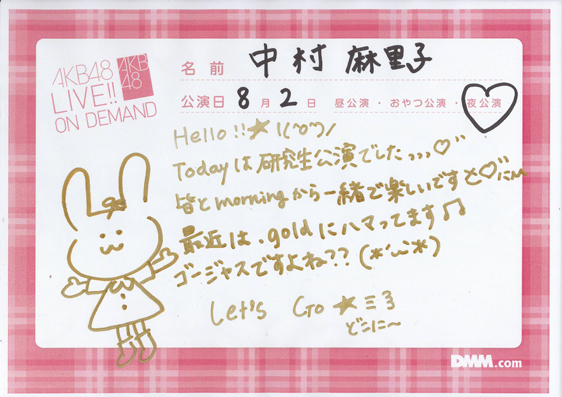 AKB48
LIVE!!
ON DEMAND
AKB
48
名前 中村麻里子
公演日 8月2日 昼公演・おやつ公演・夜公演
Hello!!★ \(^o^)/
Todayは研究生公演でした,,,♡
皆とmorningから一緒で楽しいです♡に~
最近は、goldにハマってます♫
ゴージャスですよね??(*´ω`*)
Let's Go★ミ3
どこに〜
DMM.com